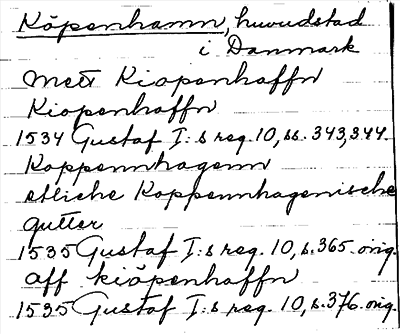 Köpenhamn, huvudstad
i Danmark
mett Kiopenhaffn
Kiopenhoffn
1534 Gustaf I:s reg. 10, ss. 343, 344.
Koppennhagenn
etliche Koppennhagenische
gutter
1535 Gustaf I:s reg. 10, s. 365. orig.
aff kiöpenhaffn
1535 Gustaf I:s reg. 10, s. 376. orig.